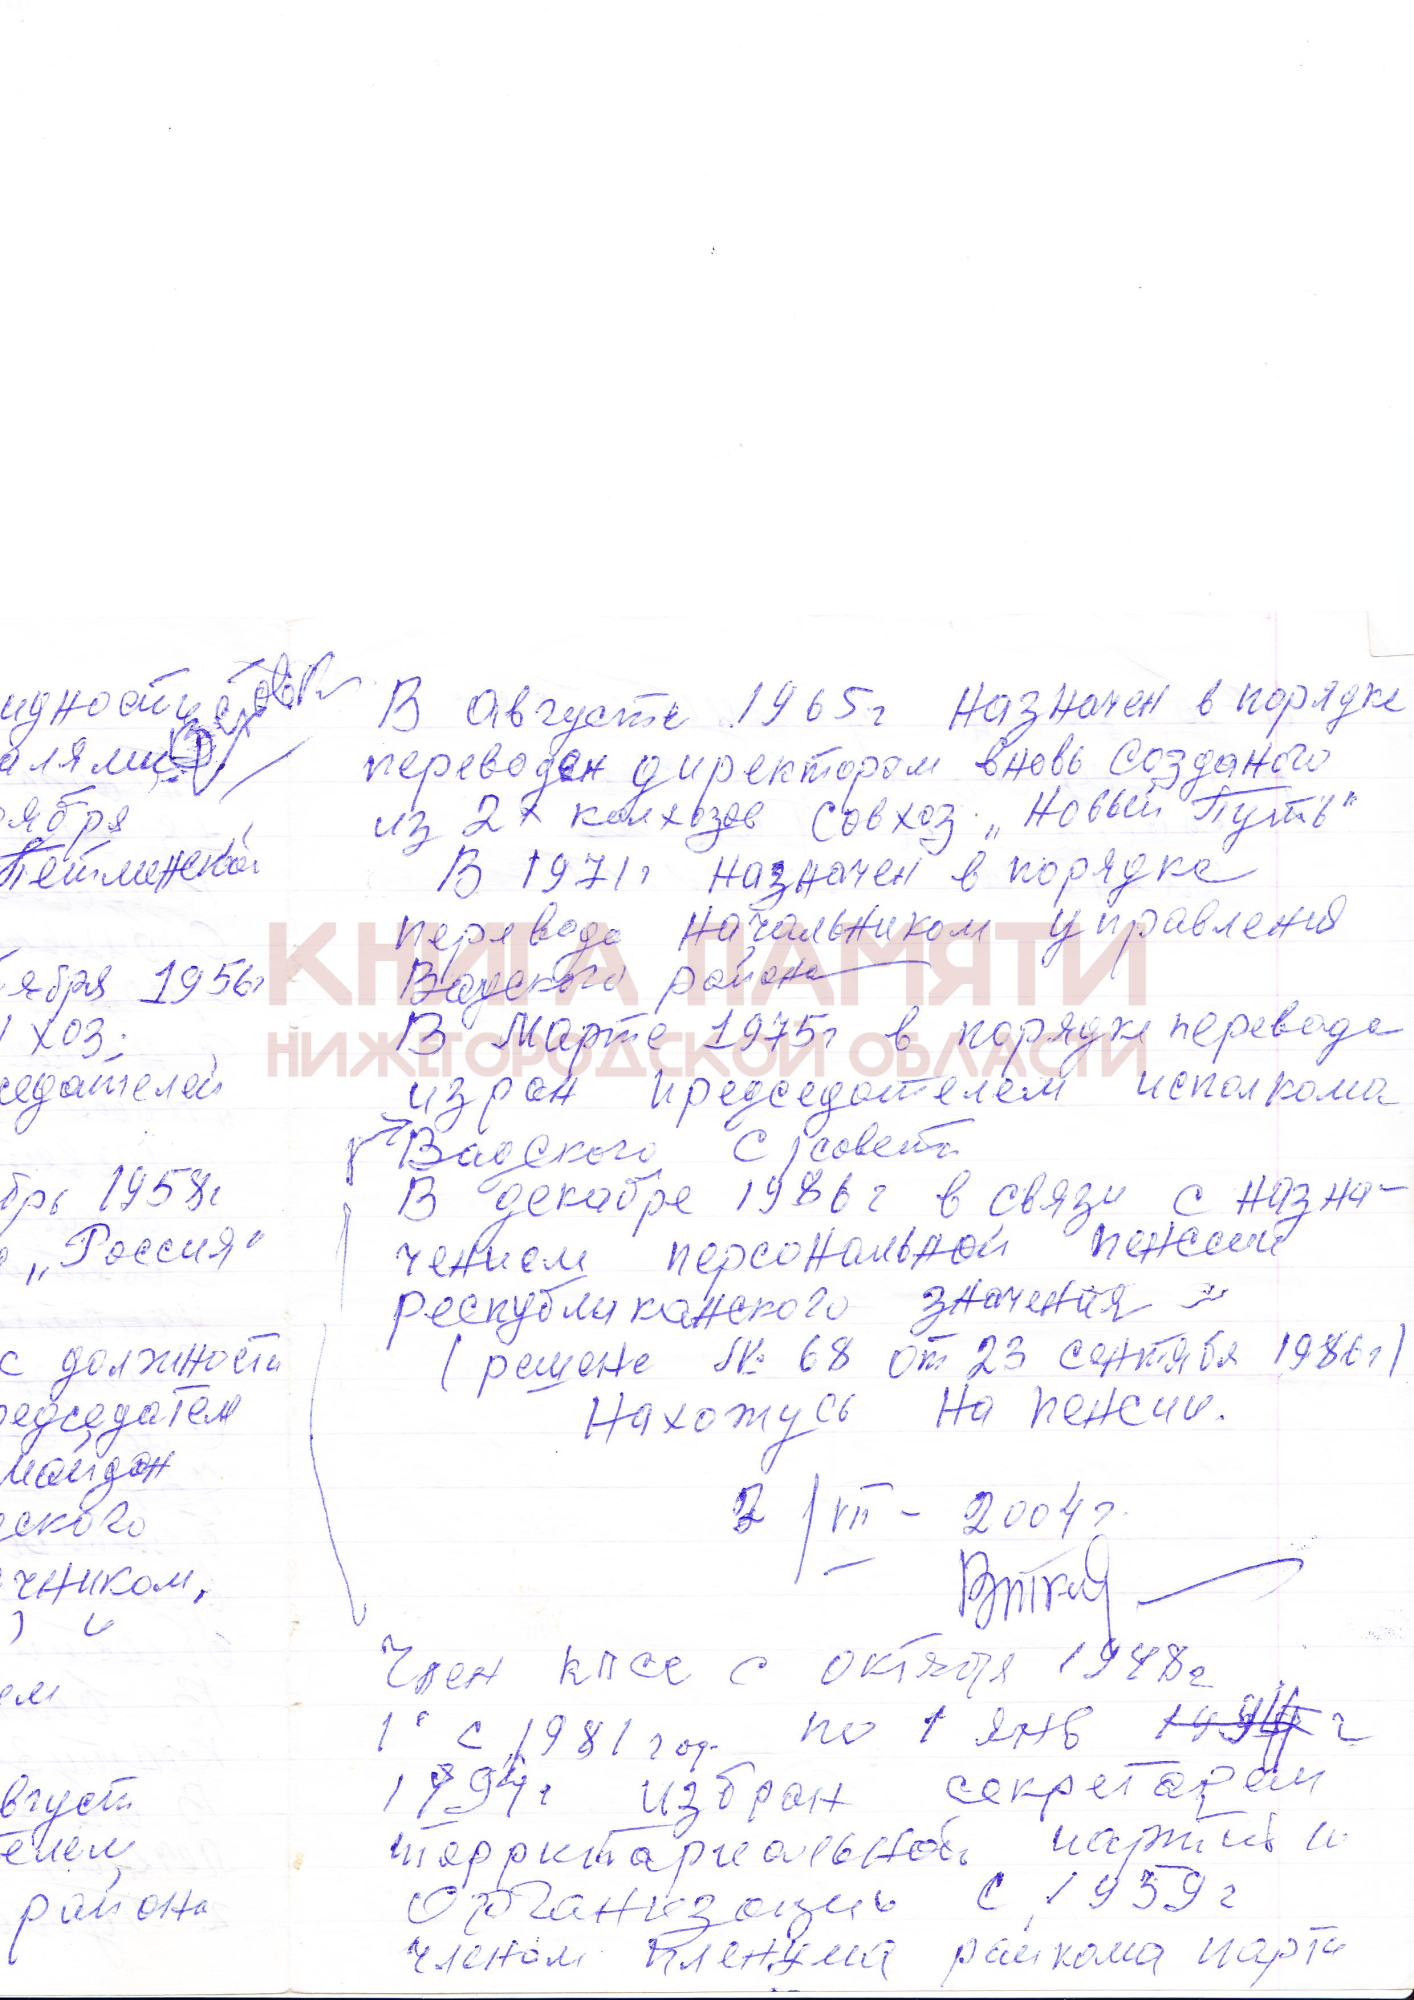 идности
алями
оября
Петлинской
тября 1956г
хоз.
седателей
брь 1958г
„Россия"
с должности
редседател
майдан
ского
чником,
) и
ем
вгуст
телем
района
В Августе 1965г назначен в порядке
переводен директором вновь созданого
из 2х колхозов совхоз „Новый Путь"
В 1971г назначен в порядке
перевода начальником управления
Вадского района
В Марте 1975г в порядке перевода
избран председателем исполкома
Вадского с/совета
В декабре 1986г в связи с назна-
чением персональной пенсии
республиканского значения
(решене № 68 от 23 сентября 1986г)
Нахожусь на пенсии.
2/VII - 2004г.
Член КПСС с октября 1948г
1 с 1981 год по 1 янв г
1994г избран секретарем
территариальной
организации с 1959г
членом пленума райкома парти
КНИГА ПАМЯТИ
НИЖЕГОРОДСКОЙ ОБЛАСТИ